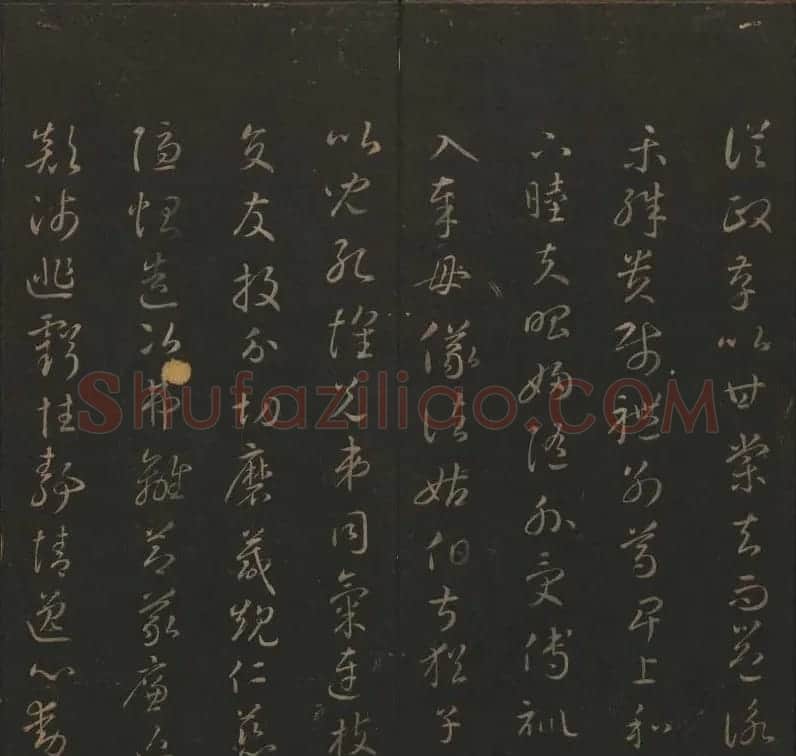 從政存以甘棠去而益詠
樂殊貴賤禮別尊卑上和
下睦夫唱婦隨外受傅訓
入奉母儀諸姑伯叔猶子
比兒孔懷兄弟同氣連枝
交友投分切磨箴規仁慈
隱惻造次弗離節義廉退
顛沛匪虧性靜情逸心動
Shufaziliao.COM